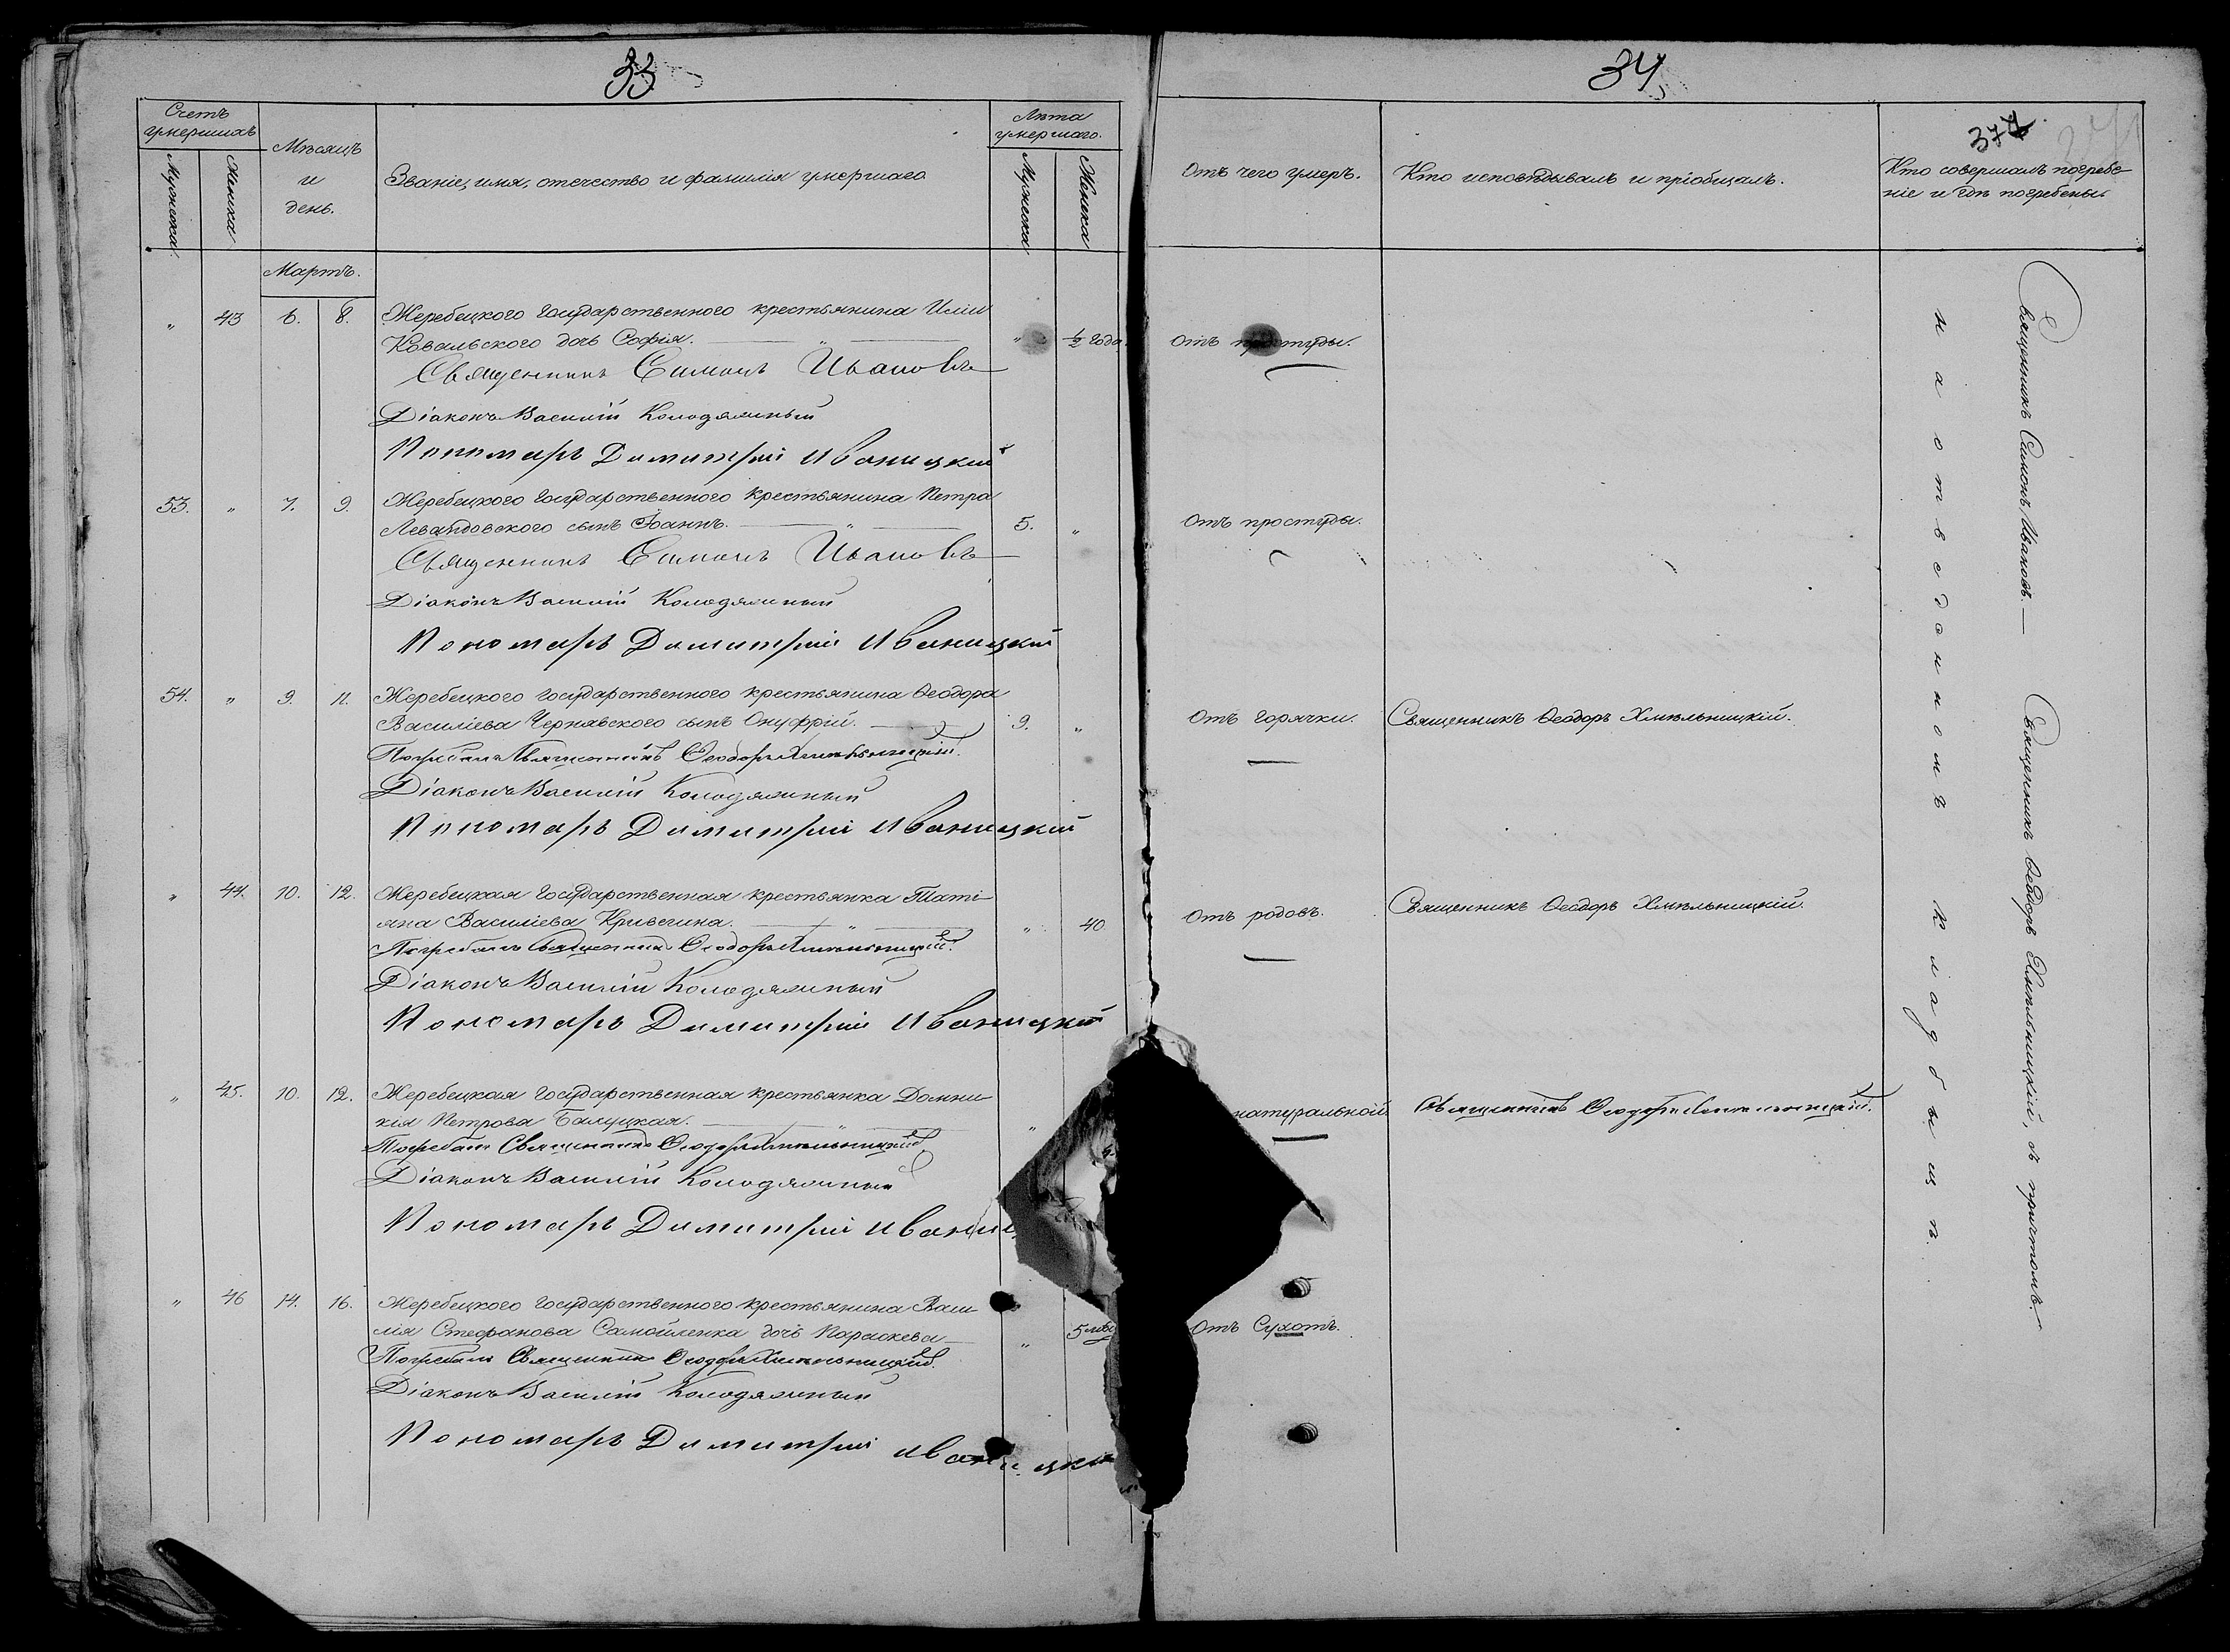 33
Счетъ
умершихъ
Мужеска
Женска
Мѣсяцъ
и
день.
Званіе, имя, отечество и фамилія умершаго
Лѣта
умершаго.
Мужеска
Женска
Мартъ.
" 43 6. 8. Жеребецкого государственного крестьянина Иліи
Ковальского дочь Софія. " " ½ года
Священникъ Симонъ Ивановъ
Діаконъ Василій Колодяжный
Пономарь Димитрій Иваницкій
53. " 7. 9. Жеребецкого государственного крестьянина Петра
Левандовского сынъ Іоаннъ. " 5. "
Священникъ Симонъ Ивановъ
Діаконъ Василій Колодяжный
Пономарь Димитрій Иваницкій
54. " 9. 11. Жеребецкого государственного крестьянина Ѳеодора
Василіева Чернявского сынъ Онуфрій. 9. "
Погребалъ Священникъ Ѳеодоръ Хмѣльницкій.
Діаконъ Василій Колодяжный
Пономарь Димитрій Иваницкій
" 44. 10. 12. Жеребецкая государственная крестьянка Таті-
яна Василіева Кривегина. " " 40
Погребалъ Священникъ Ѳеодоръ Хмѣльницкій.
Діаконъ Василій Колодяжный
Пономарь Димитрій Иваницкій
" 45. 10. 12. Жеребецкая государственная крестьянка Домни-
кія Петрова Балуцкая. " "
Погребалъ Священникъ Ѳеодоръ Хмѣльницкій
Діаконъ Василій Колодяжный
Пономарь Димитрій Ивани
" 46 14. 16. Жеребецкого государственного крестьянина Васи-
лія Стефанова Самойленка дочь Параскева " 5
Погребалъ Священникъ Ѳеодоръ Хмѣльницкій.
Діаконъ Василій Колодяжный
Пономарь Димитрій Иваницкій
34
377
Отъ чего умеръ.
Кто исповѣдывалъ и пріобщалъ.
Кто совершалъ погребе-
ніе и гдѣ погребены.
Отъ простуды.
Отъ простуды.
Отъ горячки. Священникъ Ѳеодоръ Хмѣльницкій.
Отъ родовъ. Священникъ Ѳеодоръ Хмѣльницкій.
натуральной Священникъ Ѳеодоръ Хмѣльницкій.
Отъ Сухотъ.
Священникъ Симонъ Ивановъ.— Священникъ Ѳеодоръ Хмѣльницкій, съ причтомъ.
на отведенномъ кладбищѣ.